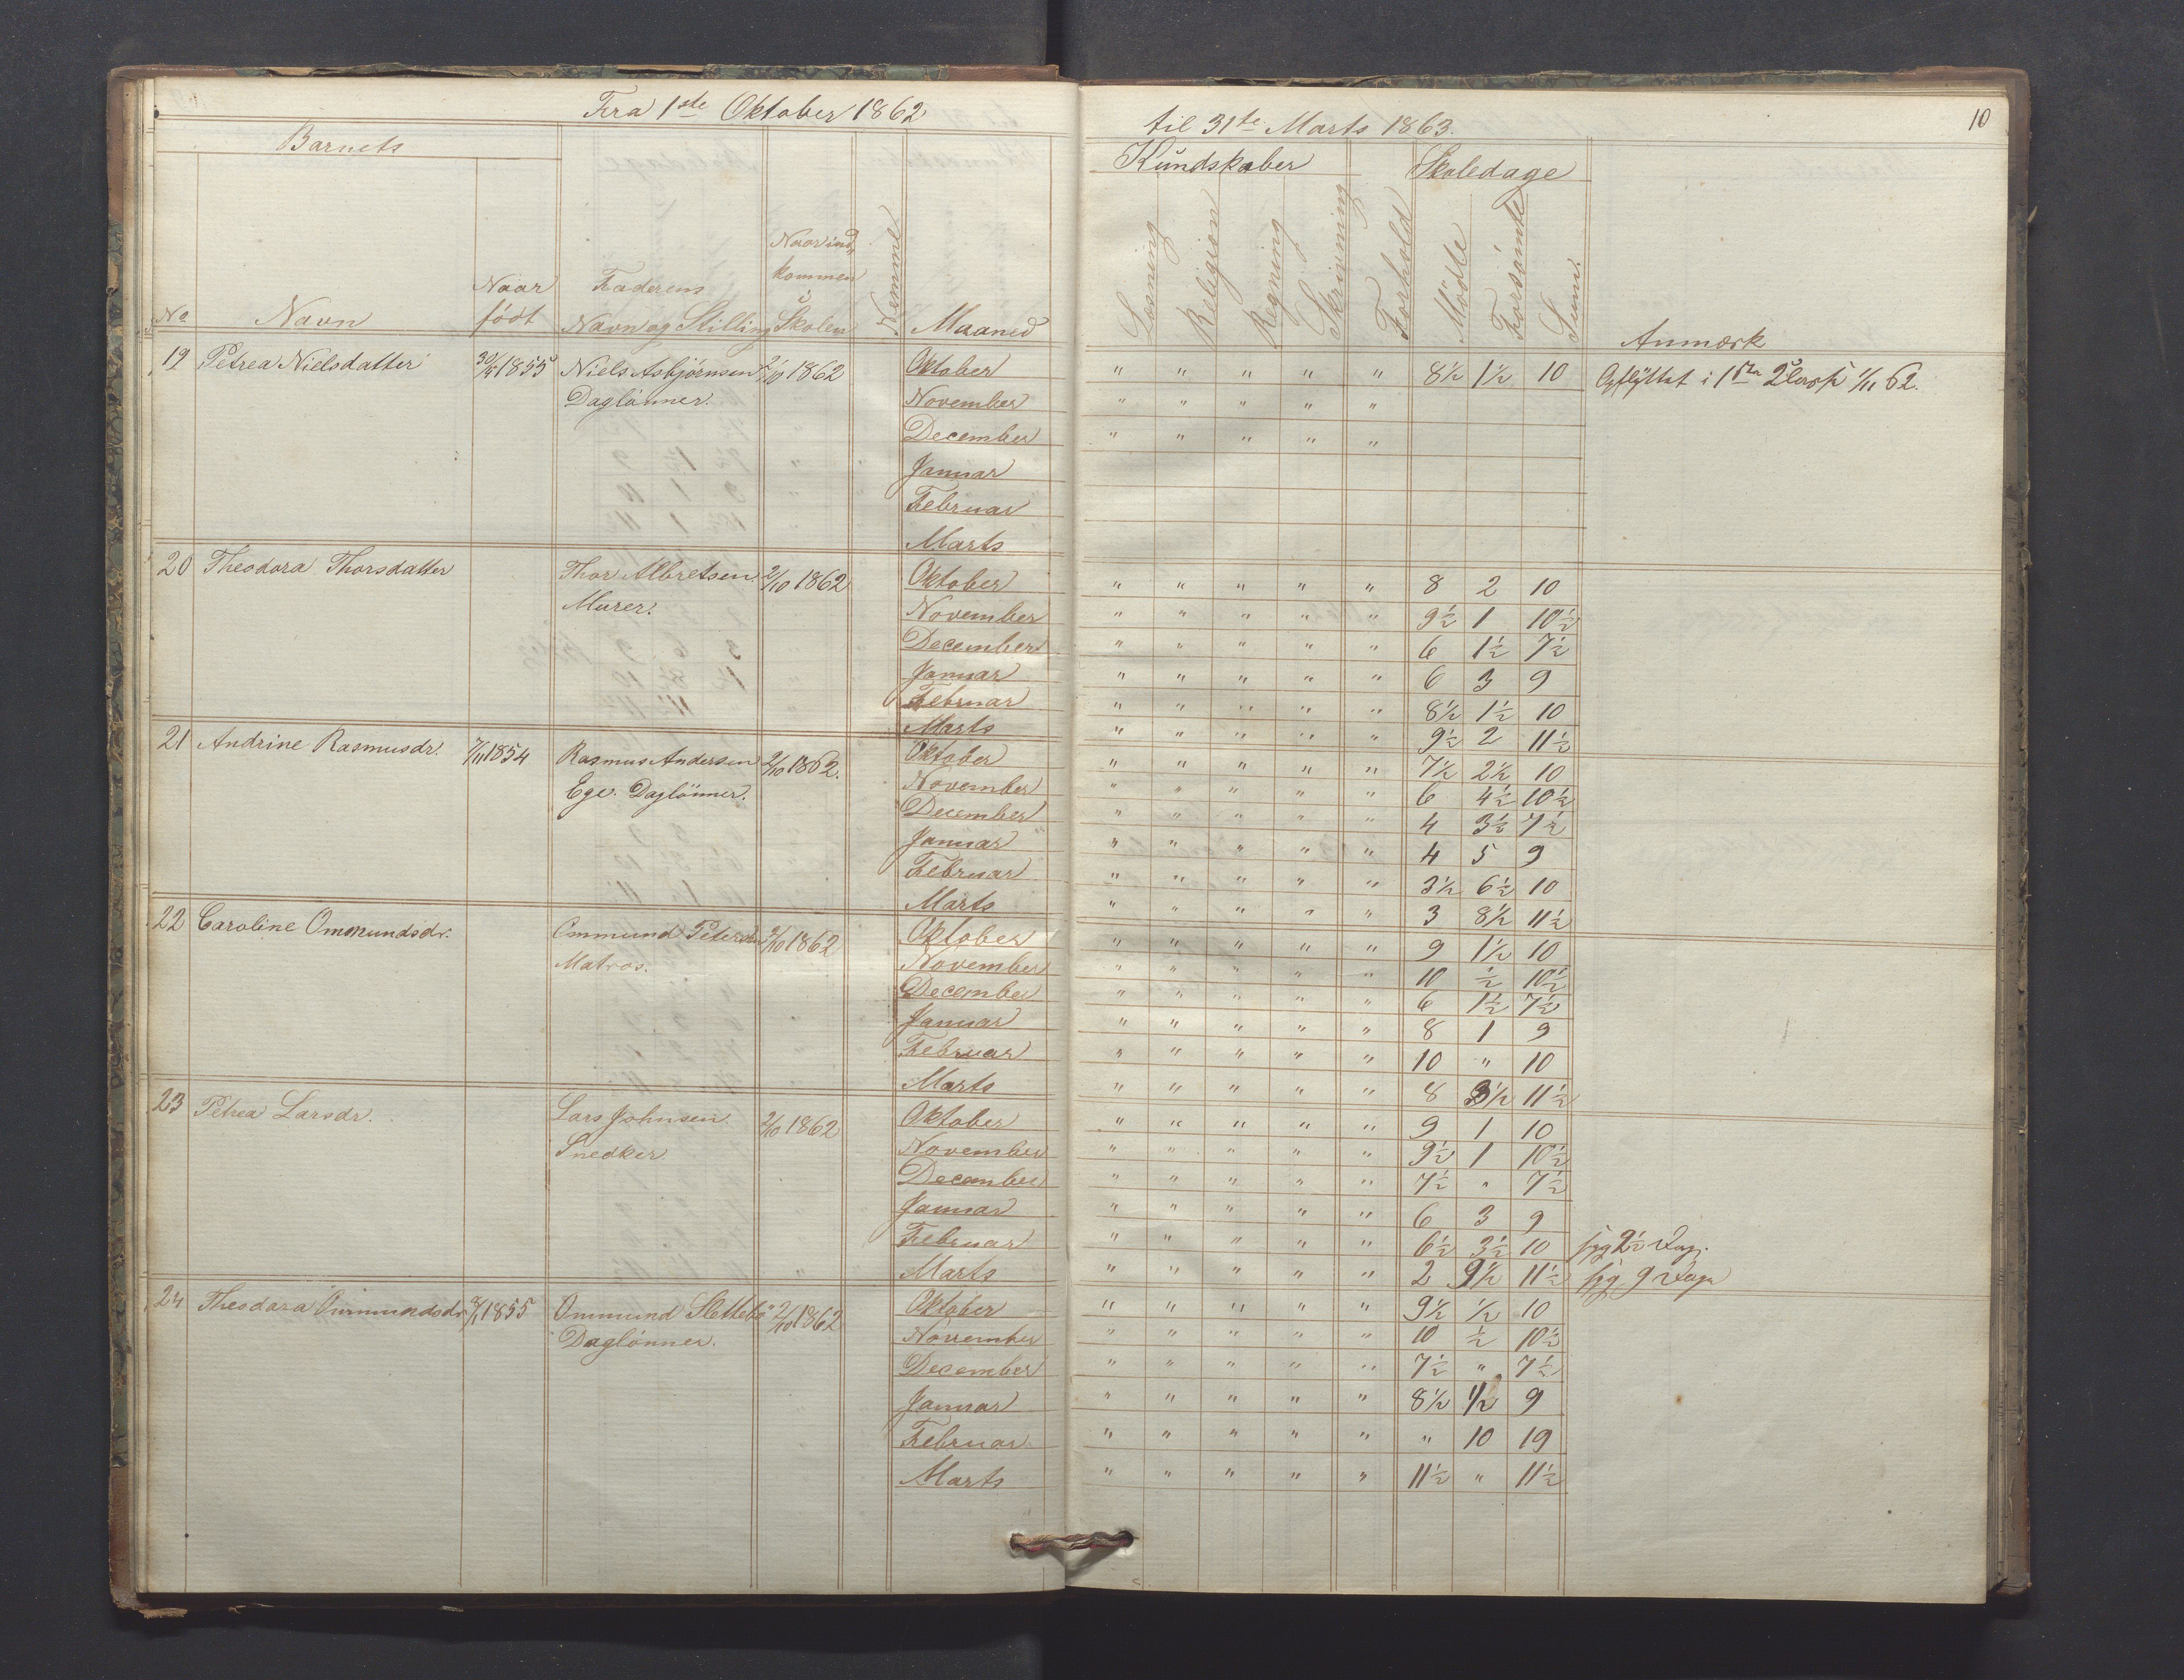 Fra 1ste Oktober 1862 til 31te Marts 1863. 10
Barnets Kundskaber Skoledage
No Navn Naar født Faderens Navn og Stilling Naar ind kommen i Skolen Nemme Maaned Læsning Religion Regning Skrivning Forhold Mødte Forsømte Sum. Anmærk
19 Petrea Nielsdatter 1855 Niels Asbjørnsen 2/10 1862 Oktober " " " " " 8½ 1½ 10 Opflyttet i 1ste 1/11 62.
Daglønner. November " " " " "
December " " " " "
Januar
Februar
Marts
20 Theodora Thorsdatter Thor Albretsen 2/10 1862 Oktober " " " " " 8 2 10
Murer. November " " " " " 9½ 1 10½
December " " " " " 6 1½ 7½
Januar " " " " " 6 3 9
Februar " " " " " 8½ 1½ 10
Marts " " " " " 9½ 2 11½
21 Andrine Rasmusdr. 7/11 1854 Rasmus Andersen 2/10 1862. Oktober " " " " " 7½ 2½ 10
Ege. Daglønner. November " " " " " 6 4½ 10½
December " " " " " 4 3½ 7½
Januar " " " " " 4 5 9
Februar " " " " " 3½ 6½ 10
Marts " " " " " 3 8½ 11½
22 Caroline Ommundsdr. Ommund Petersen 2/10 1862 Oktober " " " " " 9 1½ 10
Matros. November " " " " " 10 ½ 10½
December " " " " " 6 1½ 7½
Januar " " " " " 8 1 9
Februar " " " " " 10 " 10
Marts " " " " " 8 3½ 11½
23 Petrea Larsdr. Lars Johnsen 2/10 1862 Oktober " " " " " 9 1 10
Snedker. November " " " " " 9½ 1 10½
December " " " " " 7½ " 7½
Januar " " " " " 6 3 9
Februar " " " " " 6½ 3½ 10 syg 2½ Dag.
Marts " " " " " 2 9½ 11½ syg 9 Dage
24 Theodora Ommundsdr. 1855 Ommund Slettebø 2/10 1862 Oktober " " " " " 9½ ½ 10
Daglønner. November " " " " " 10 ½ 10½
December " " " " " 7½ " 7½
Januar " " " " " 8½ ½ 9
Februar " " " " " " 10 19
Marts " " " " " 11½ " 11½